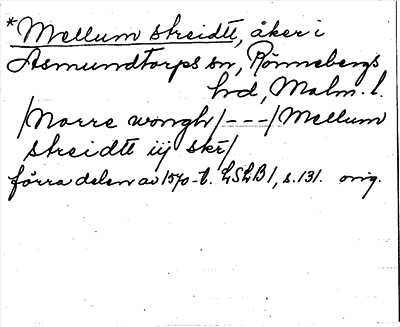 *Mellum streidtt, åker i
Asmundtorps sn, Rönnebergs
hrd, Malm. l.
/Norre wongh/---/Mellum
streidtt iij skr/
förra delen av 1570-t. LSLB1, s. 131. orig.